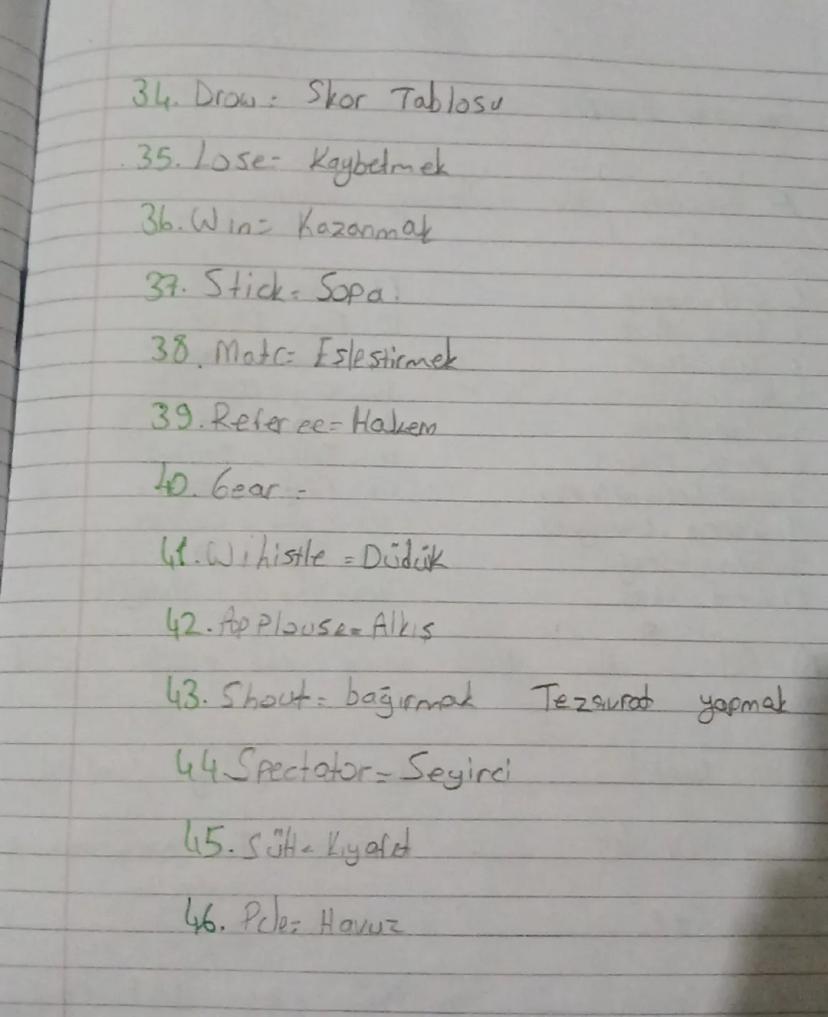 34. Drow = Skor Tablosu
35. Lose = Kaybetmek
36. Win = Kazanmak
37. Stick = Sopa
38. Matc = Eşleştirmek
39. Referee = Hakem
40. Gear =
41. Wihistle = Düdük
42. Applouse = Alkış
43. Shout = bağırmak Tezavrat yapmak
44. Spectator = Seyirci
45. = Kıyafet
46. = Havuz